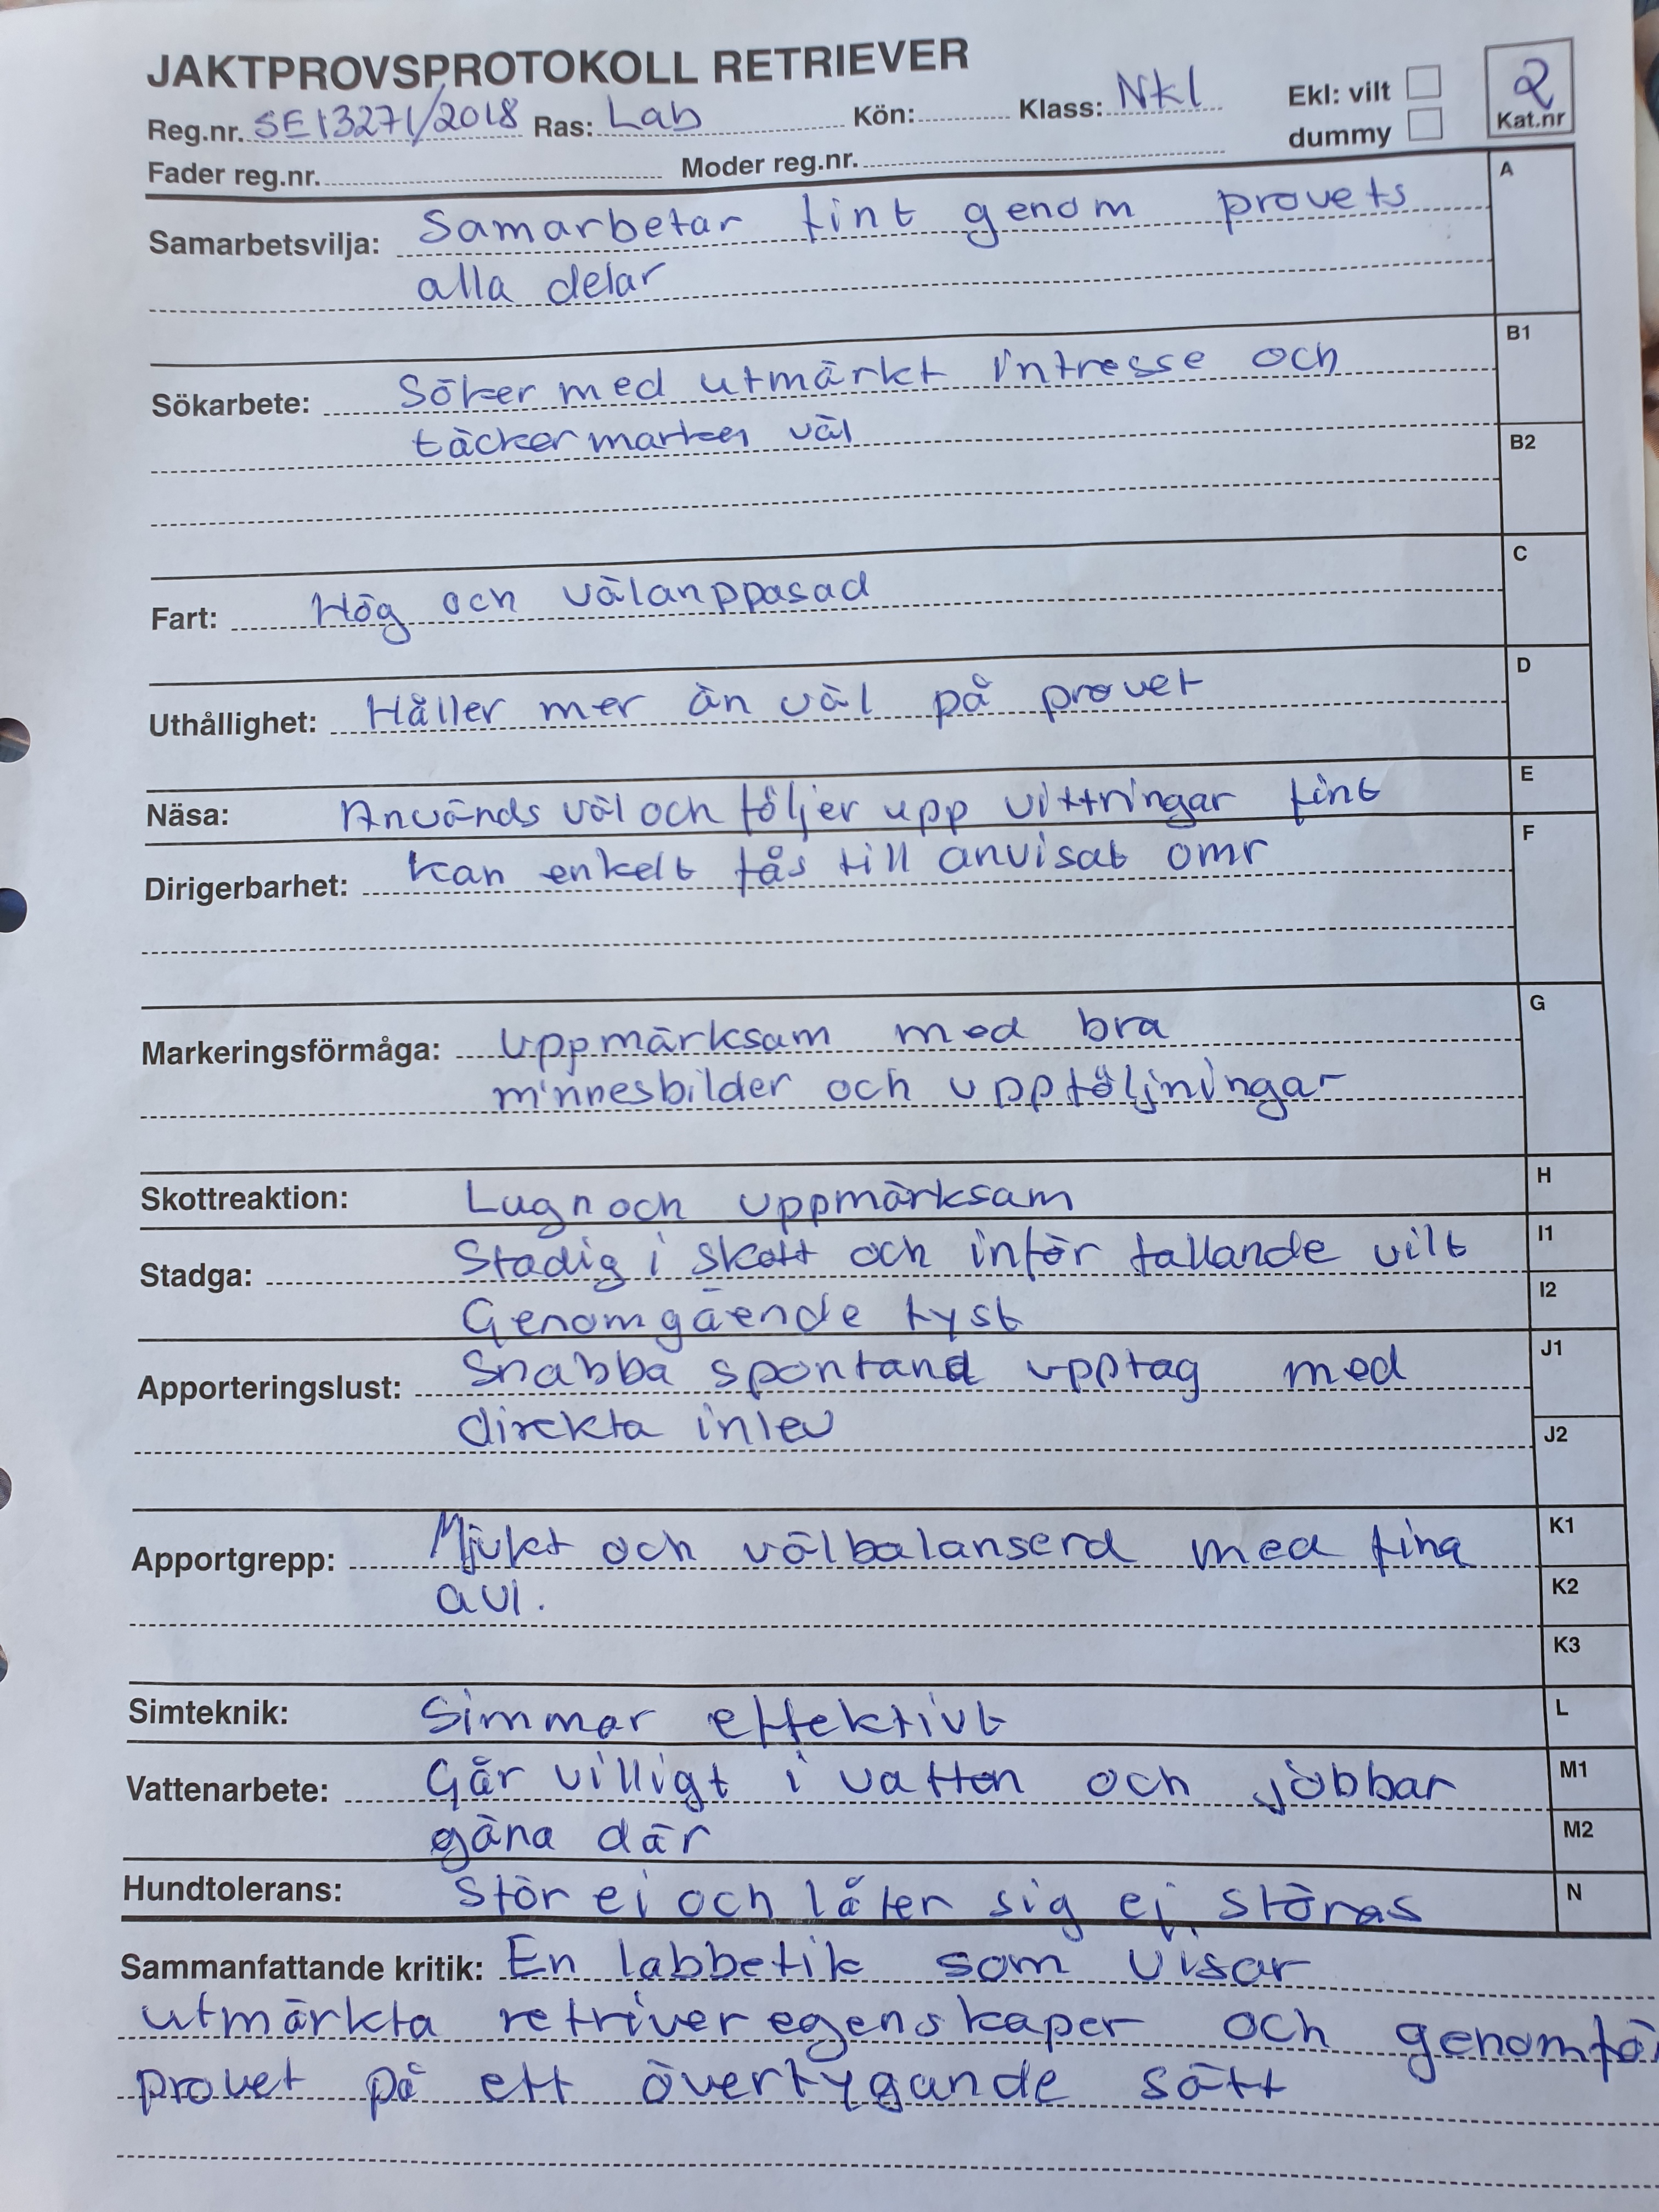 JAKTPROVSPROTOKOLL RETRIEVER
Reg.nr. SE13271/2018 Ras: Lab Kön: Klass: Nkl Ekl: vilt 2
dummy Kat.nr
Fader reg.nr. Moder reg.nr.
A
Samarbetsvilja: Samarbetar fint genom provets
alla delar
B1
Sökarbete: Söker med utmärkt intresse och
täcker marken väl
B2
C
Fart: Hög och välanppasad
D
Uthållighet: Håller mer än väl på provet
E
Näsa: Används väl och följer upp vittringar fint
F
Dirigerbarhet: Kan enkelt fås till anvisat omr
G
Markeringsförmåga: Uppmärksam med bra
minnesbilder och uppföljningar
H
Skottreaktion: Lugn och uppmärksam
I1
Stadga: Stadig i skott och inför fallande vilt
I2
Genomgående tyst
J1
Apporteringslust: Snabba spontana upptag med
direkta inlev
J2
K1
Apportgrepp: Mjukt och välbalanserd med fina
avl.
K2
K3
L
Simteknik: Simmar effektivt
M1
Vattenarbete: Går villigt i vatten och jobbar
gäna där
M2
N
Hundtolerans: Stör ei och låter sig ej störas
Sammanfattande kritik: En labbetik som visar
utmärkta retriveregenskaper och genomför
provet på ett övertygande sätt